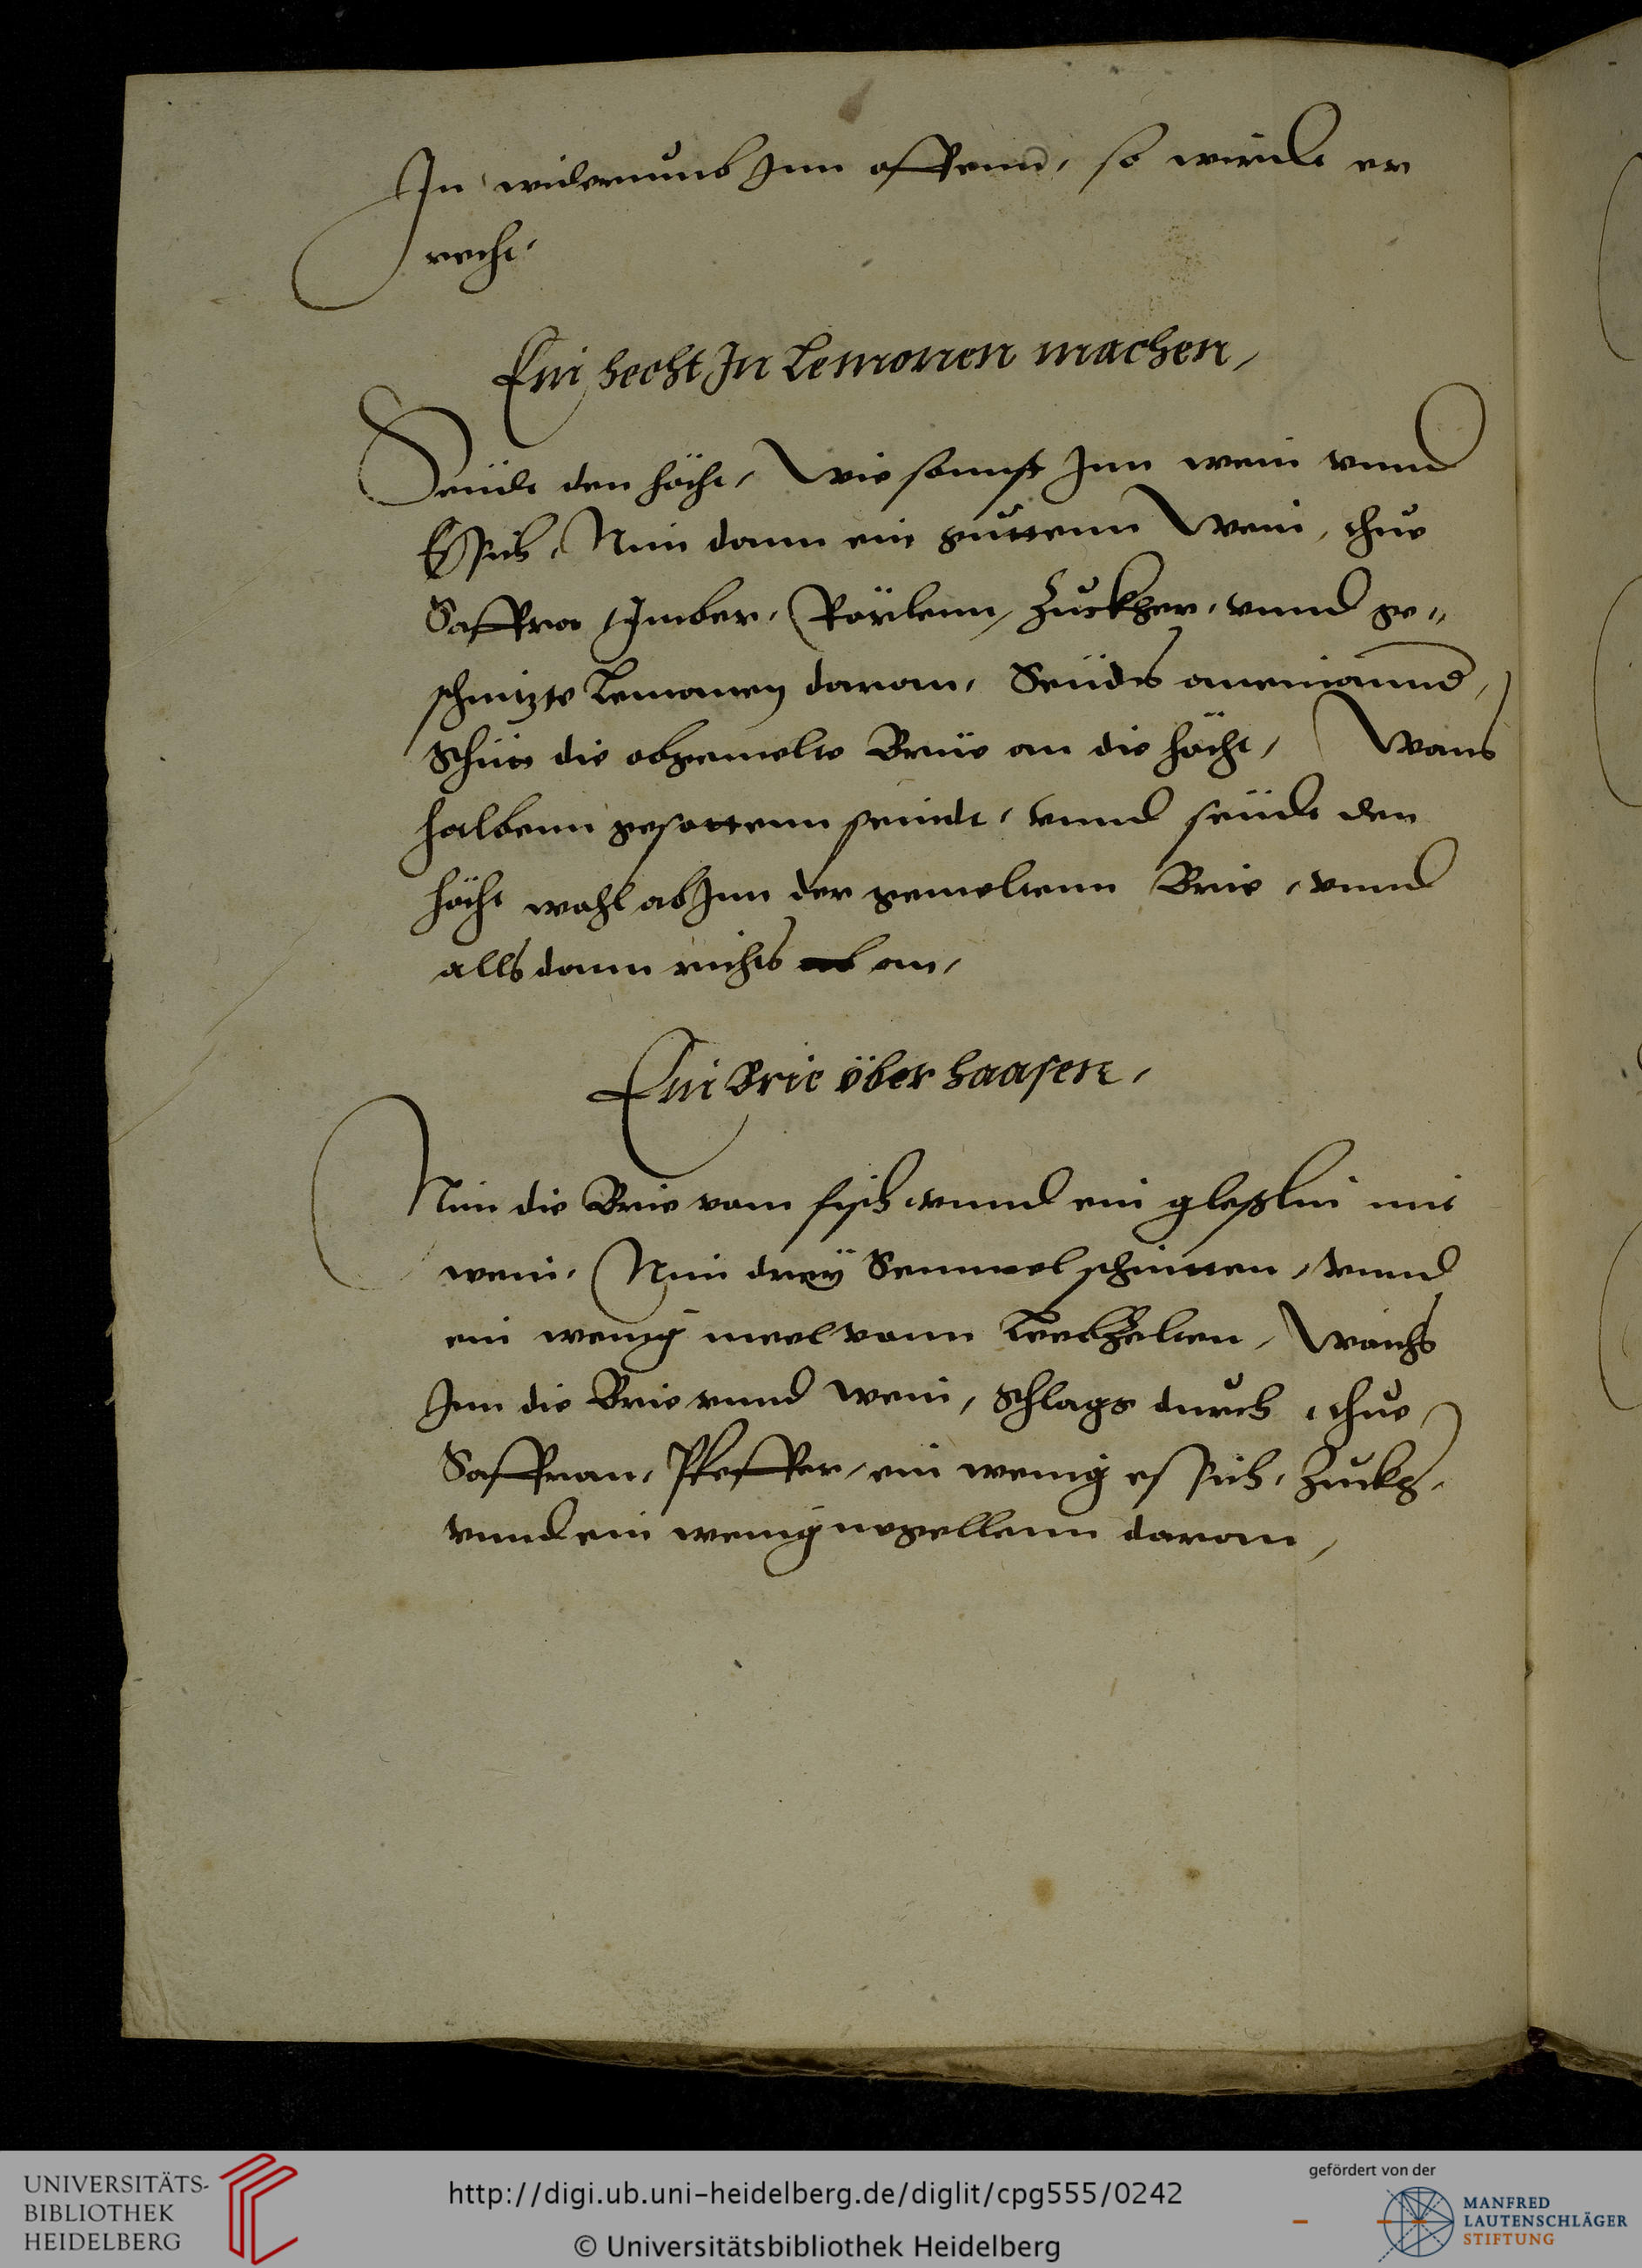 In widerumb Inn offenn, so wirdt er
recht,
Ein hecht In Lemonen machen,
Seüdt den hächt, Wie sonnst Inn wein vnnd
Essich, Nim dann ein guttenn Wein, thue
Saffra Imber, Rörlenn, Zuckher, vnnd ge„
schnizte Lemonen daran, Seüds aneinannd,
Schüt die obgemelte Brüe an die hächt, Wans
halbenn gesottenn seindt, vnnd seüdt den
hächt wohl ab Inn der gemeltenn Brie, vnnd
allsdann richts an,
Ein Brie über haasen,
Nim die Brie vom fisch vnnd ein gleßlin mit
wein, Nim dreÿ Semmel schnitten, vnnd
ein wenig meel vonn Leebzelten, Waichs
Inn die Brie vnnd wein, schlags durch, thue
Saffran, Pfeffer, ein wenig essich, Zuckh,
vnnd ein wenig negellenn daran,
UNIVERSITÄTS-
BIBLIOTHEK
HEIDELBERG
http://digi.ub.uni-heidelberg.de/diglit/cpg555/0242
© Universitätsbibliothek Heidelberg
gefördert von der
MANFRED
LAUTENSCHLÄGER
STIFTUNG